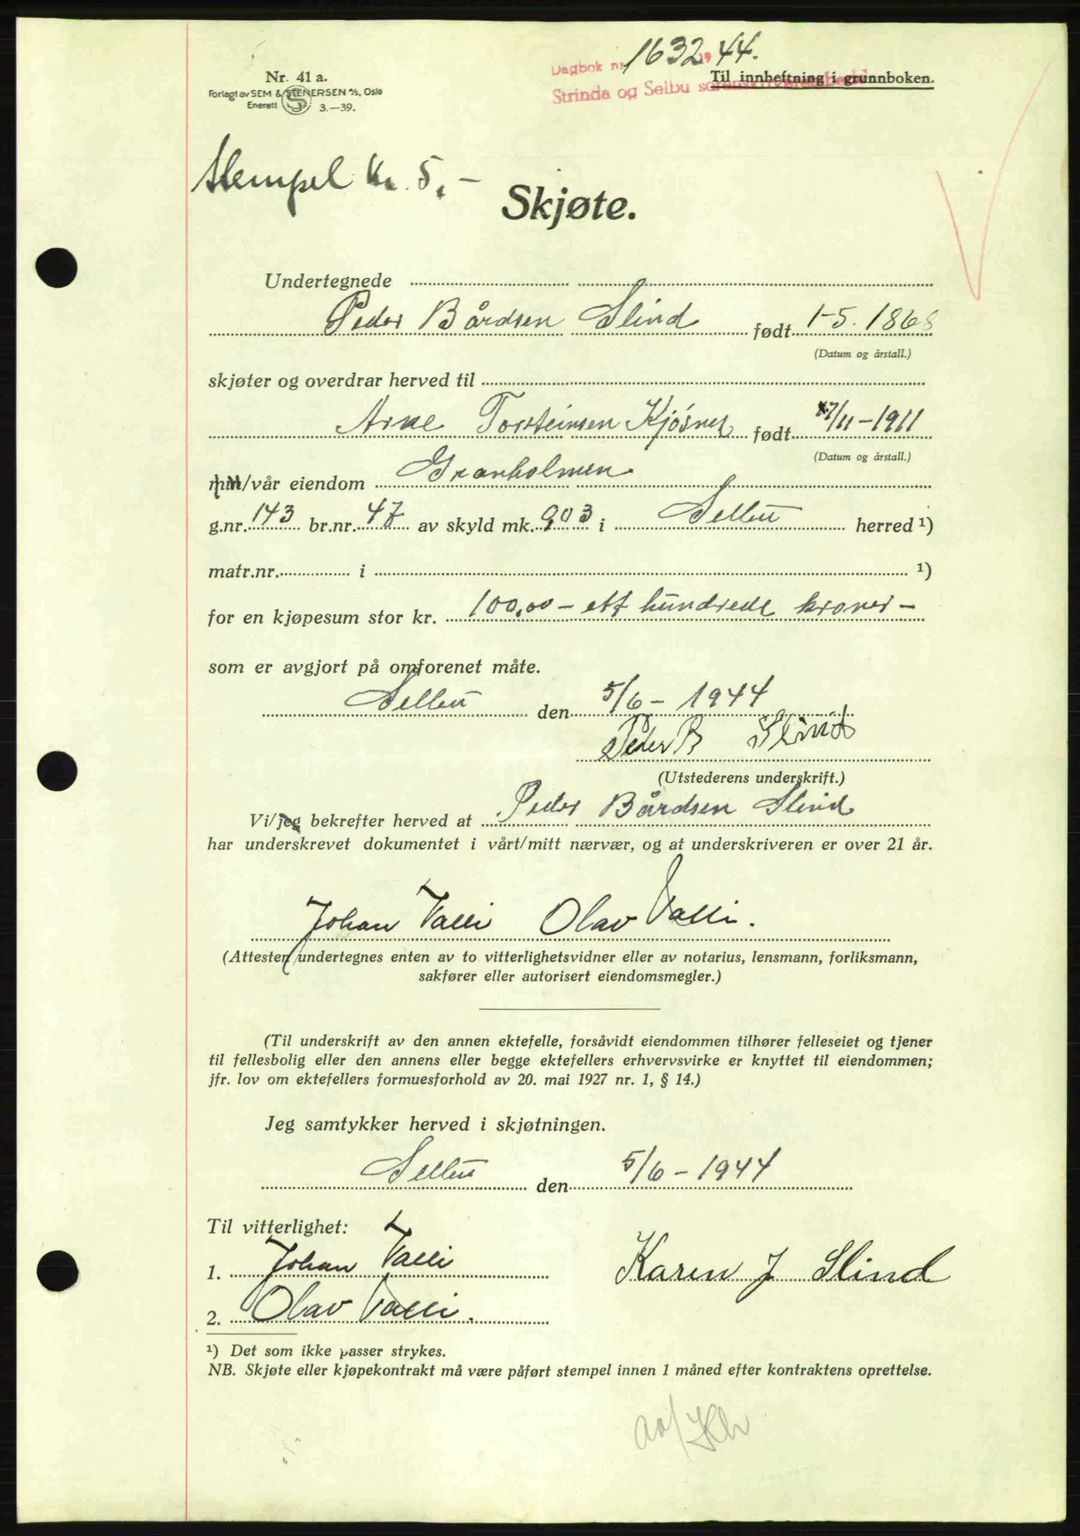 Dagbok nr. 1632 19 44.
Til innheftning i grunnboken.
Strinda og Selbu sorenskriverembede
Nr. 41 a.
Forlagt av SEM & STENERSEN A/S, Oslo
Enerett S 3.—39.
Stempel kr. 5,-
Skjøte.
Undertegnede
Peder Bårdsen Slind født 1-5. 1868
(Datum og årstall.)
skjøter og overdrar herved til
Arne Torsteinsen Kjøsnes født 17/11-1911
(Datum og årstall.)
min/vår eiendom Granholmen
g.nr. 143 br.nr. 47 av skyld mk. 0,03 i Selbu herred ¹)
matr.nr. i ¹)
for en kjøpesum stor kr. 100,00 - ett hundrede kroner -
som er avgjort på omforenet måte.
Selbu den 5/6 - 1944
Peder B Slind
(Utstederens underskrift.)
Vi/jeg bekrefter herved at Peder Bårdsen Slind
har underskrevet dokumentet i vårt/mitt nærvær, og at underskriveren er over 21 år.
Johan Valli Olav Valli.
(Attesten undertegnes enten av to vitterlighetsvidner eller av notarius, lensmann, forliksmann,
sakfører eller autorisert eiendomsmegler.)
(Til underskrift av den annen ektefelle, forsåvidt eiendommen tilhører felleseiet og tjener
til fellesbolig eller den annens eller begge ektefellers erhvervsvirke er knyttet til eiendommen;
jfr. lov om ektefellers formuesforhold av 20. mai 1927 nr. 1, § 14.)
Jeg samtykker herved i skjøtningen.
Selbu den 5/6 - 1944
Til vitterlighet:
1. Johan Valli Karen J Slind
2. Olav Valli.
¹) Det som ikke passer strykes.
NB. Skjøte eller kjøpekontrakt må være påført stempel innen 1 måned efter kontraktens oprettelse.